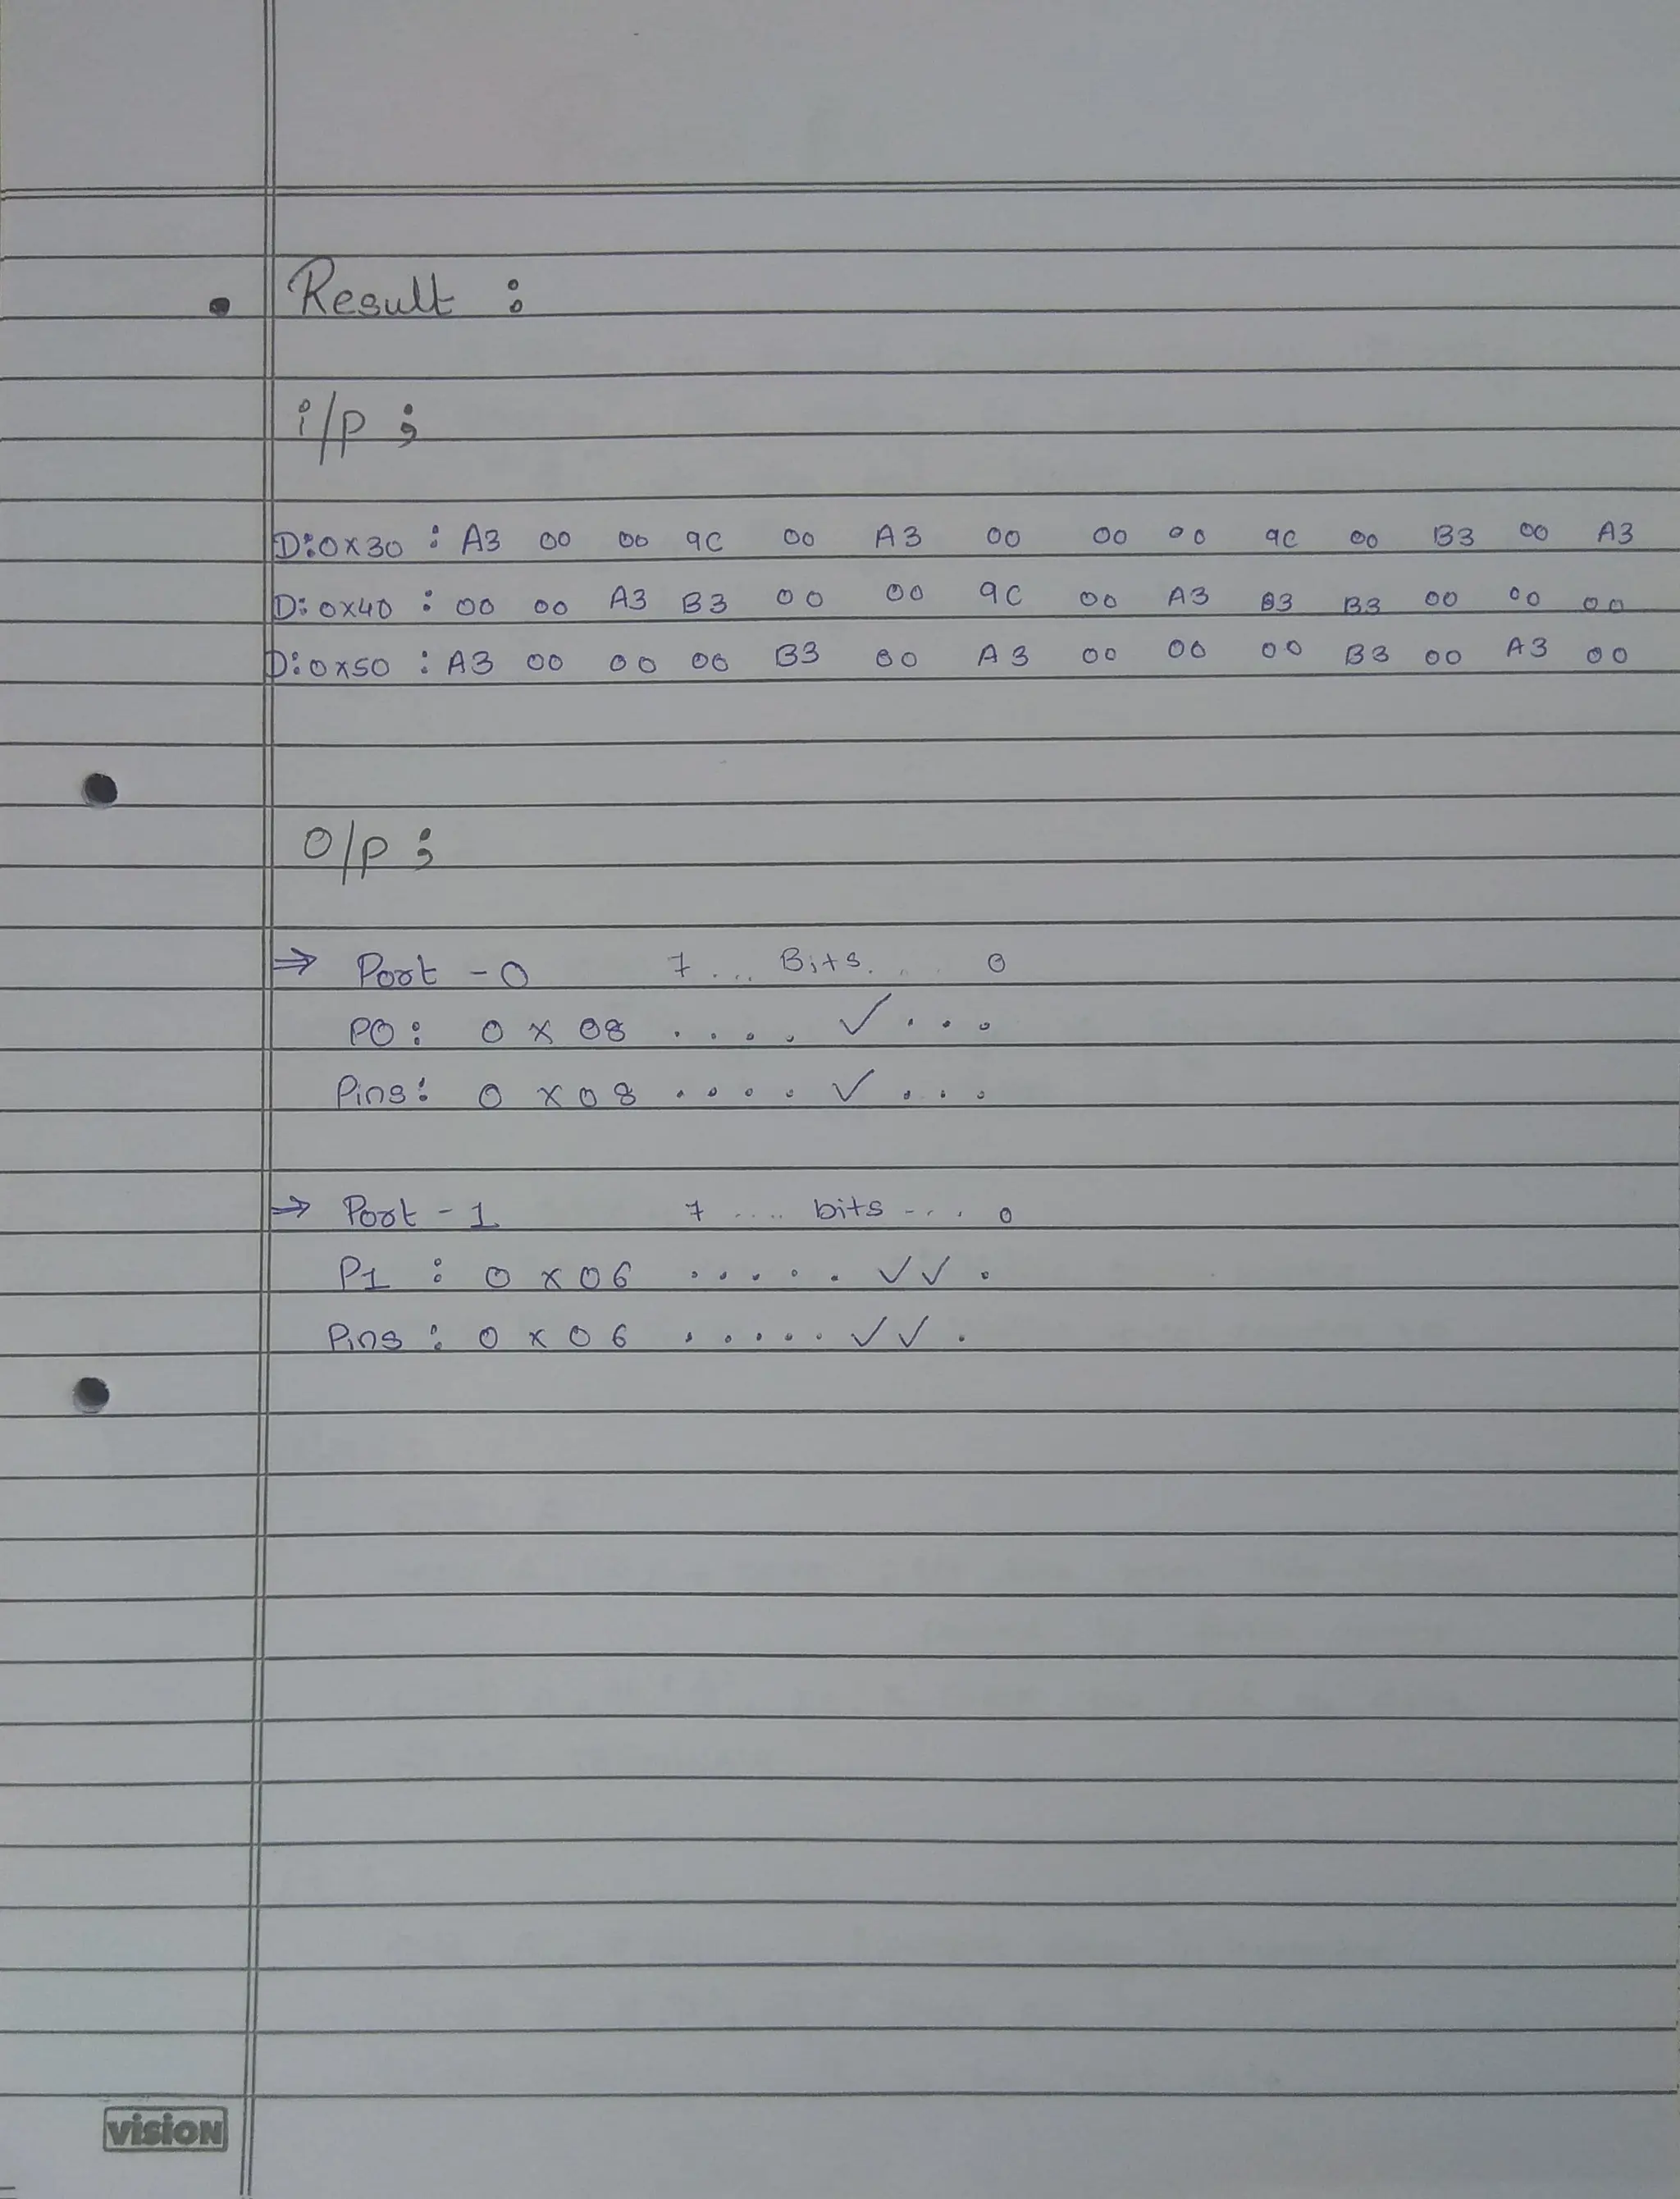 Result :
i/p ;
D:0x30 : A3 00 00 9C 00 A3 00 00 00 9C 00 B3 00 A3
D:0x40 : 00 00 A3 B3 00 00 9C 00 A3 B3 B3 00 00 00
D:0x50 : A3 00 00 00 B3 00 A3 00 00 00 B3 00 A3 00
O/p ;
⇒ Port - 0 7 ... Bits. .. 0
P0 : 0 x 08 . . . . ✓ . . .
Pins: 0 x 08 . . . . ✓ . . .
⇒ Port - 1 7 .... bits - .. . 0
P1 : 0 x 06 . . . . . ✓ ✓ .
Pins : 0 x 06 . . . . . ✓ ✓ .
vision